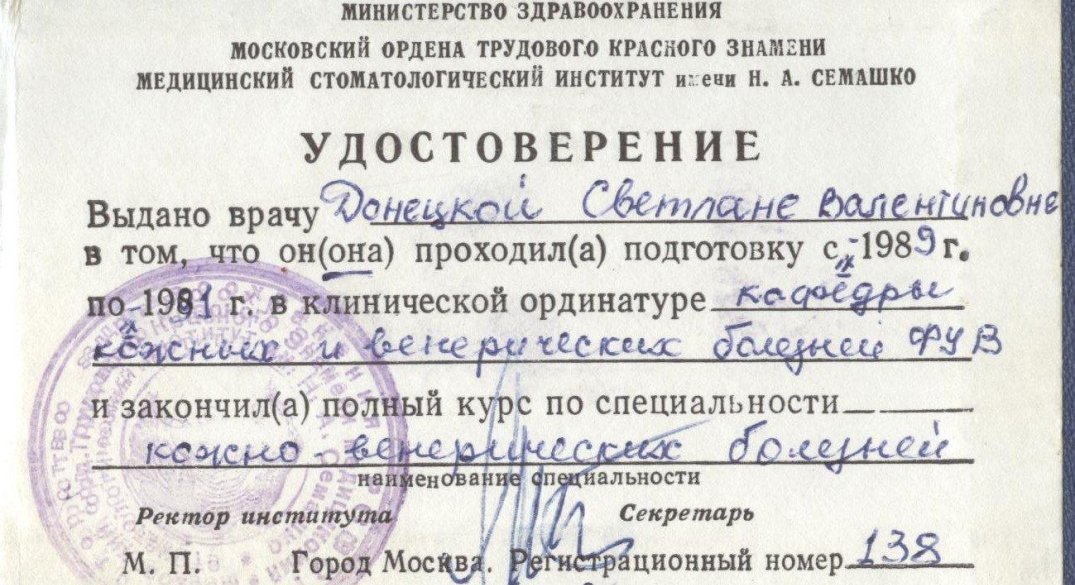 МИНИСТЕРСТВО ЗДРАВООХРАНЕНИЯ
МОСКОВСКИЙ ОРДЕНА ТРУДОВОГО КРАСНОГО ЗНАМЕНИ
МЕДИЦИНСКИЙ СТОМАТОЛОГИЧЕСКИЙ ИНСТИТУТ имени Н. А. СЕМАШКО
УДОСТОВЕРЕНИЕ
Выдано врачу Донецкой Светлане Валентиновне
в том, что он(она) проходил(а) подготовку с 1989 г.
по 1991 г. в клинической ординатуре кафедры
кожных и венерических болезней ФУВ
и закончил(а) полный курс по специальности
кожно-венерических болезней
наименование специальности
Ректор института Секретарь
М. П. Город Москва. Регистрационный номер 138